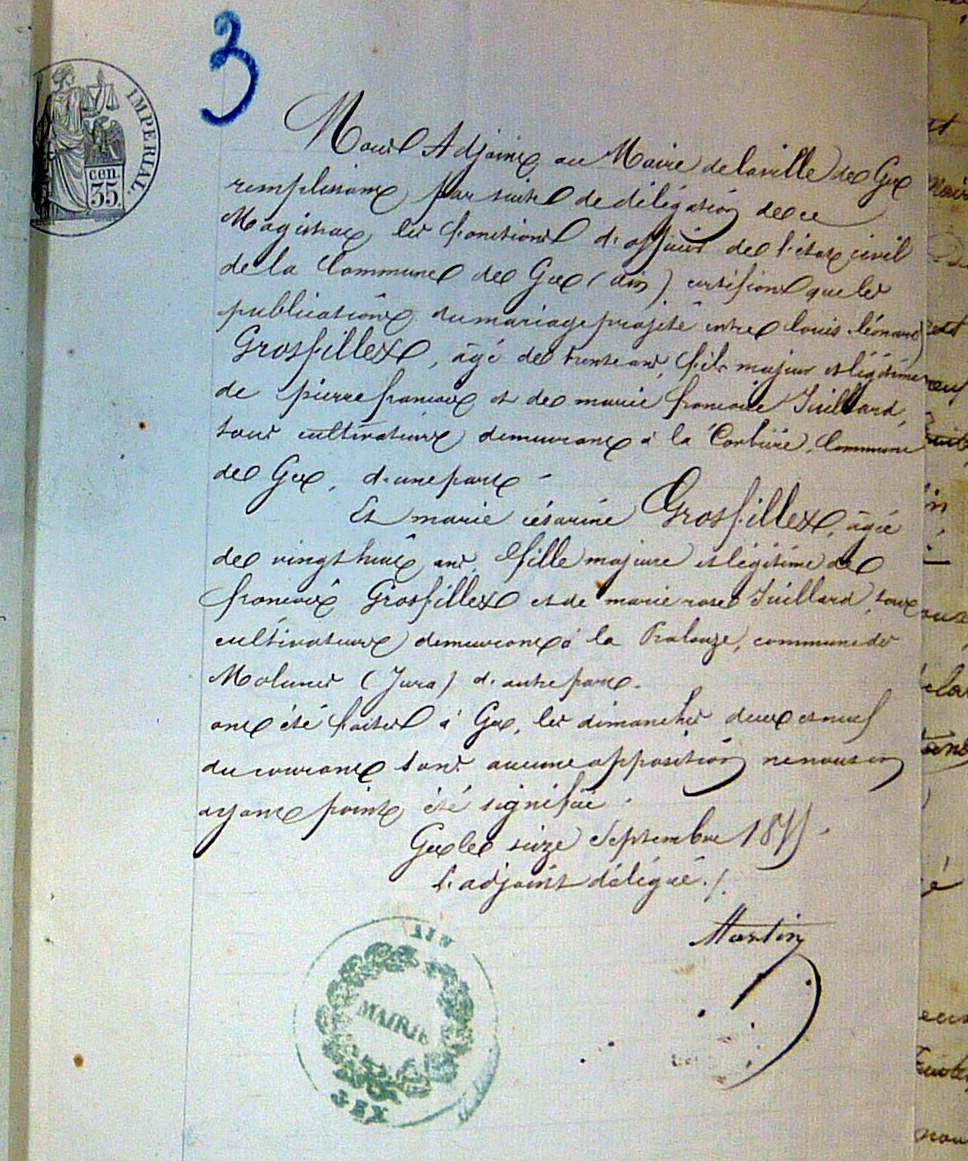 3
IMPERIAL.
cen.
35.
Nous Adjoint au Maire de la ville de Gex
remplissant par suite de délégation de ce
Magistrat, les fonctions d'officier de l'état civil
de la Commune de Gex (ain) certifions que les
publications du mariage projeté entre louis léonard
Grosfillex, âgé de trente ans, fils majeur et légitime
de pierre françois et de marie françoise Juillard,
tous cultivateurs demeurant à la Corbière, Commune
de Gex, d'une part -
Et marie césarine Grosfillex, âgée
de vingt huit ans, fille majeure et légitime de
françois Grosfillex et de marie rose Juillard, tous
cultivateurs demeurant à la Pralouze, commune de
Molunes (Jura) d'autre part.
ont été faites à Gex, les dimanches deux et neuf
du courant sans aucune opposition ne nous en
ayant point été signifiée.
Gex le seize Septembre
l'adjoint délégué ./.
Martin
AIN
MAIRIE
GEX